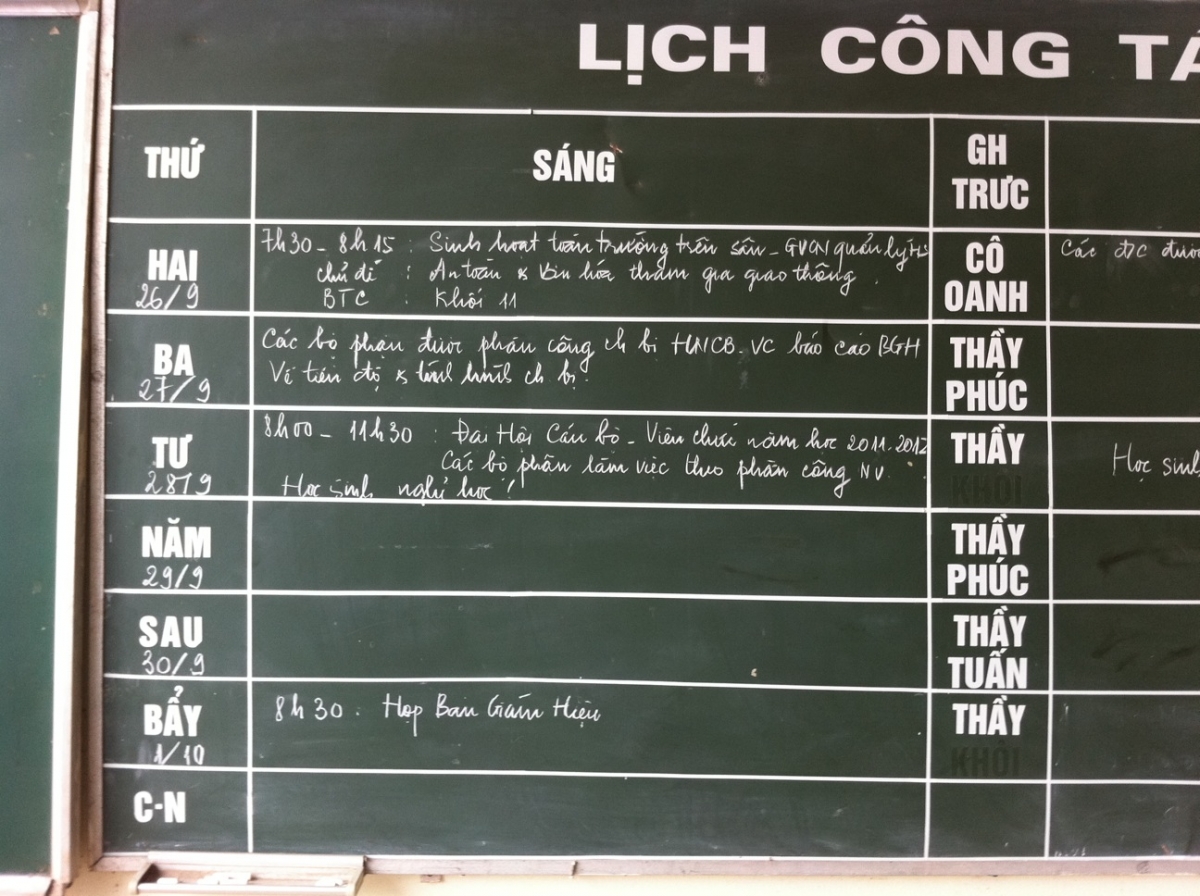 LỊCH CÔNG TÁ
THỨ
SÁNG
GH
TRƯC
HAI
26/9
7h30 - 8h15 : Sinh hoạt toàn trường trên sân - GVCN quản lý HS
chủ đề : An toàn & Văn hóa tham gia giao thông.
BTC : Khối 11
CÔ
OANH
Các đ/c đươc
BA
27/9
Các bộ phận được phân công ch bị HNCB-VC báo cáo BGH
Về tiến độ & tình hình ch bị.
THẦY
PHÚC
TƯ
28/9
8h00 - 11h30 : Đại Hội Cán bộ - Viên chức năm học 2011-2012
Các bộ phận làm việc theo phân công NV.
Học sinh nghỉ học!
THẦY
KHÔI
Học sinh
NĂM
29/9
THẦY
PHÚC
SAU
30/9
THẦY
TUẤN
BẨY
1/10
8h30. Họp Ban Giám Hiệu
THẦY
KHÔI
C-N